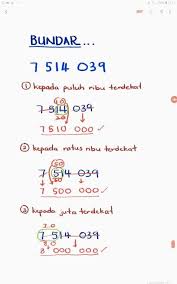 BUNDAR...
7 514 039
① kepada puluh ribu terdekat
7 514 039
7 510 000 ✓
② kepada ratus ribu terdekat
7 514 039
7 500 000 ✓
③ kepada juta terdekat
7 514 039
8 000 000 ✓